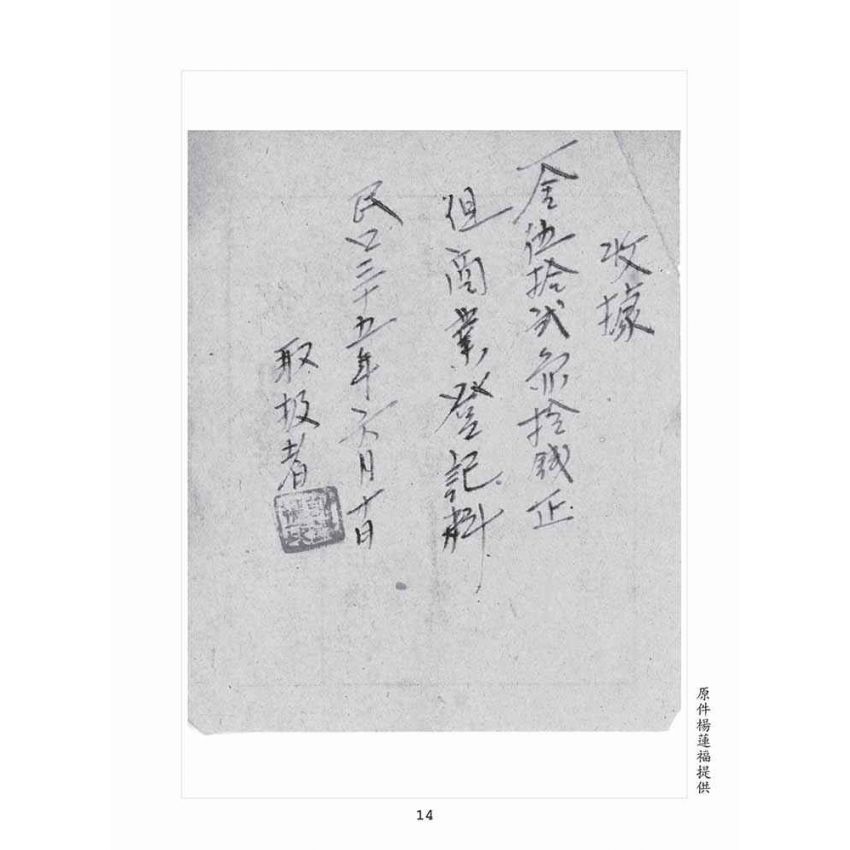 收據
一金伍拾弍 拾錢正
但商業登記料
民口三十五年六月十日
取扱者
原件楊蓮福提供
14